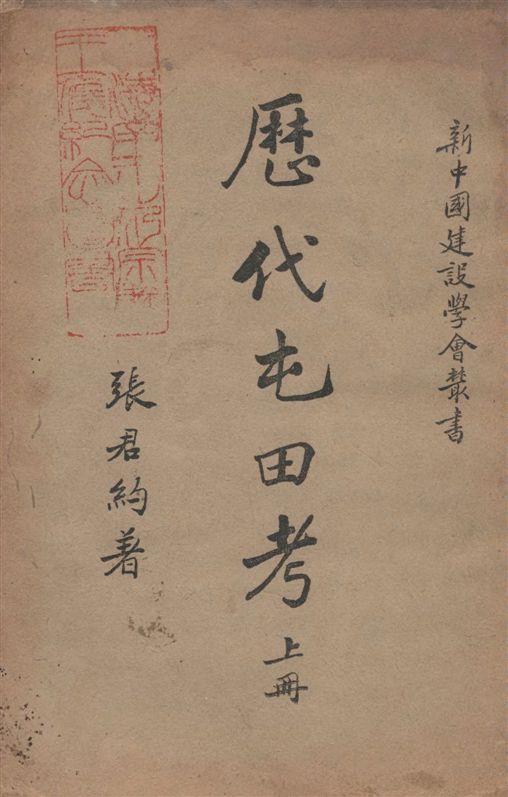 新中國建設學會叢書
歷代屯田考
上冊
張君約著